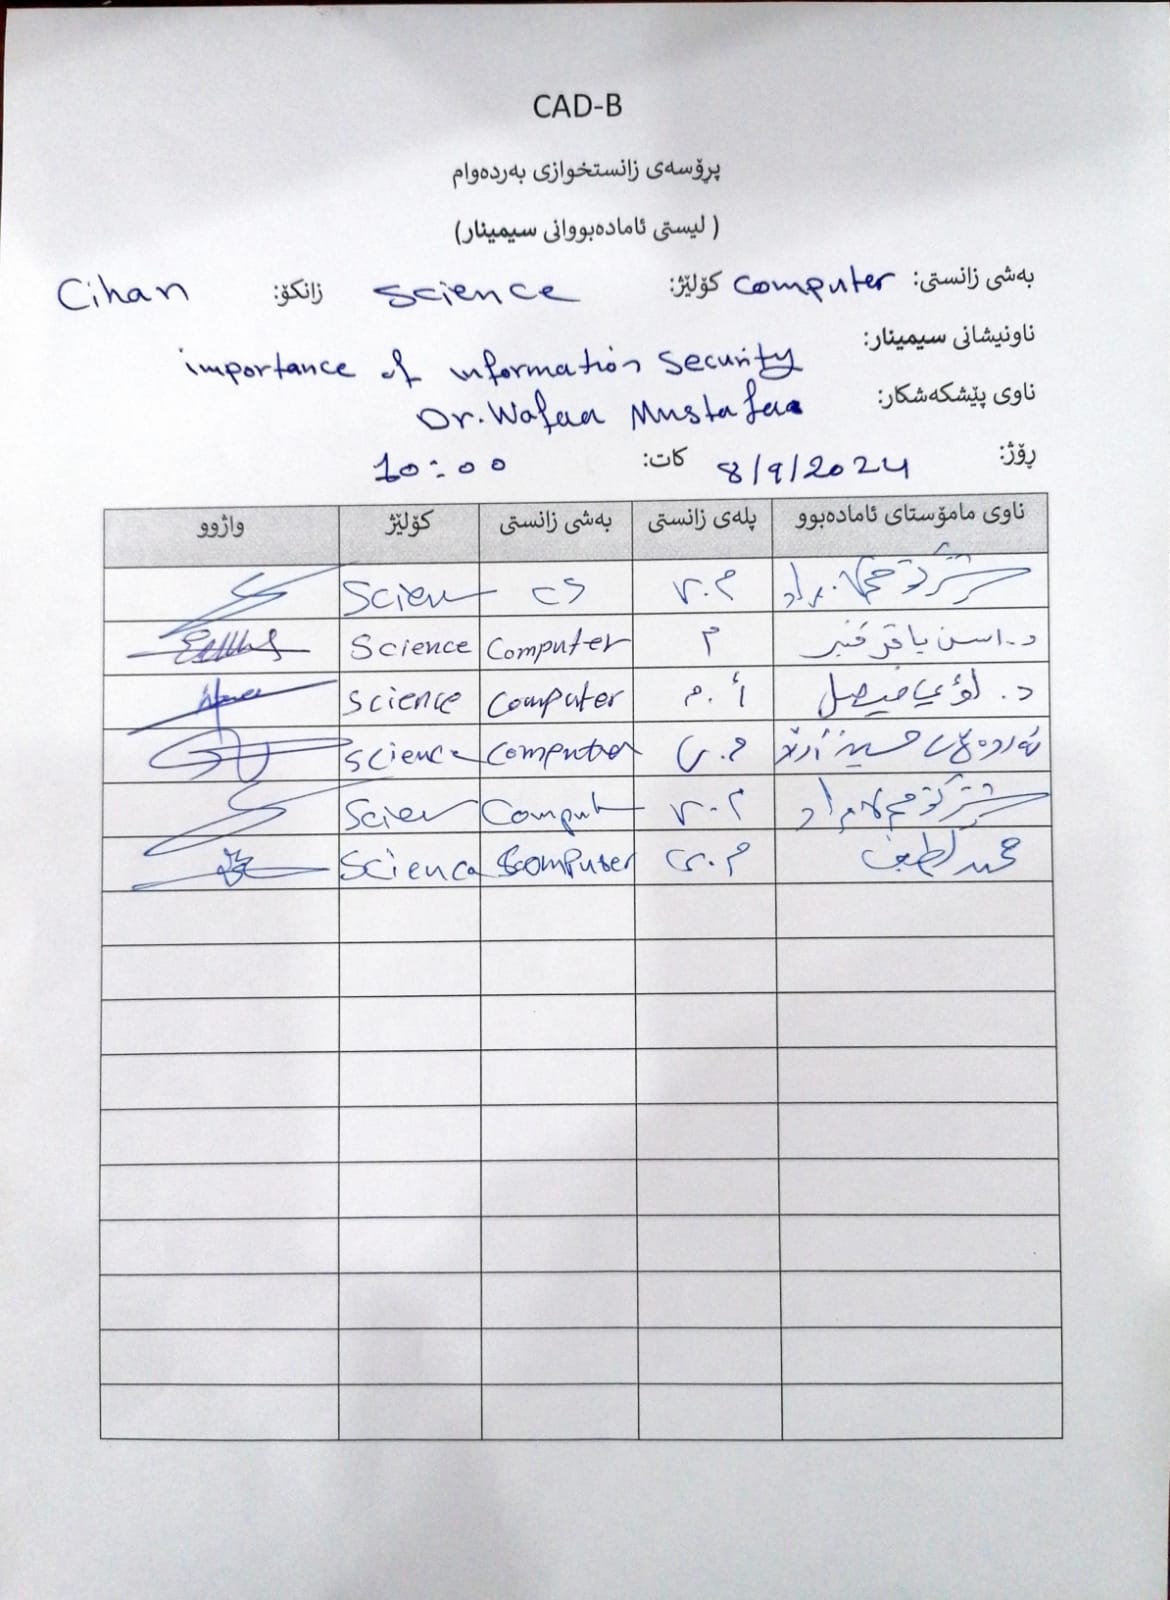 CAD-B
پڕۆسەی زانستخوازی بەردەوام
( لیستی ئامادەبووانی سیمینار)
بەشی زانستی: Computer کۆلێژ: Science زانکۆ: Cihan
ناونیشانی سیمینار: importance of information Security
ناوی پێشکەشکار: Dr. Wafaa Mustafa
ڕۆژ: 8/9/2024 کات: 10:00
ناوی مامۆستای ئامادەبوو پلەی زانستی بەشی زانستی کۆلێژ واژوو
م.ی CS Scien
د. باقر قنبر م Computer Science
د. لؤي فيصل أ.م Computer Science
حسین م.ی Computer Science
م.ی Comput Scien
محمد لطيف م.ی Computer Science